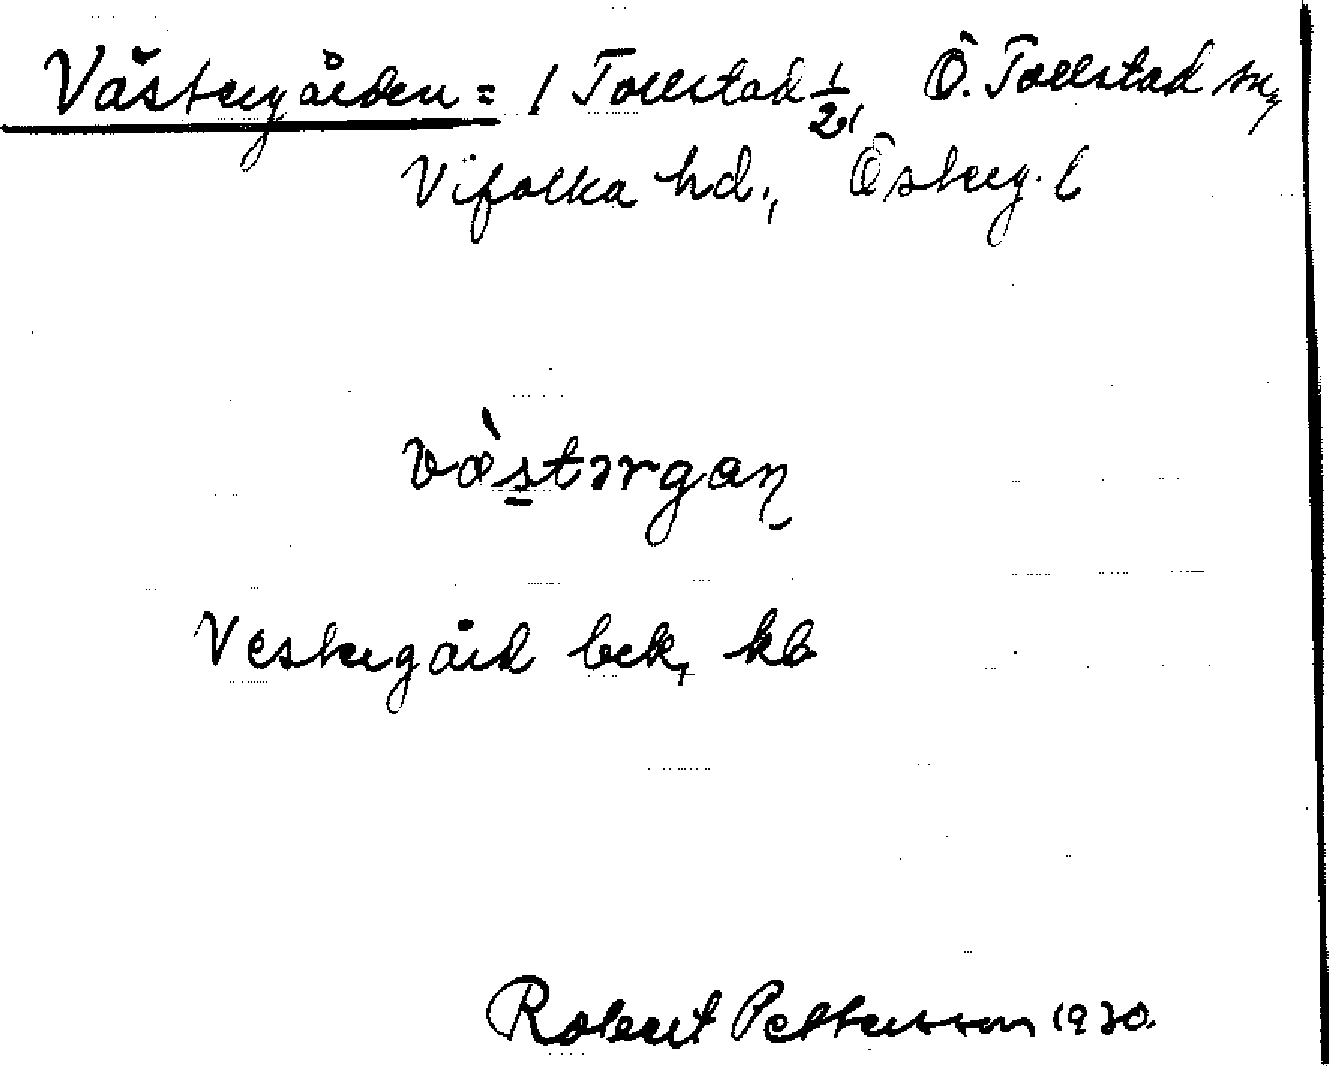 Västergården = 1 Tollstad 1/2, Ö. Tollstad sn,
Vifolka hd., Österg. l
væ̀stərgaɳ
Vestergård bek, kb
Robert Pettersson 1930.